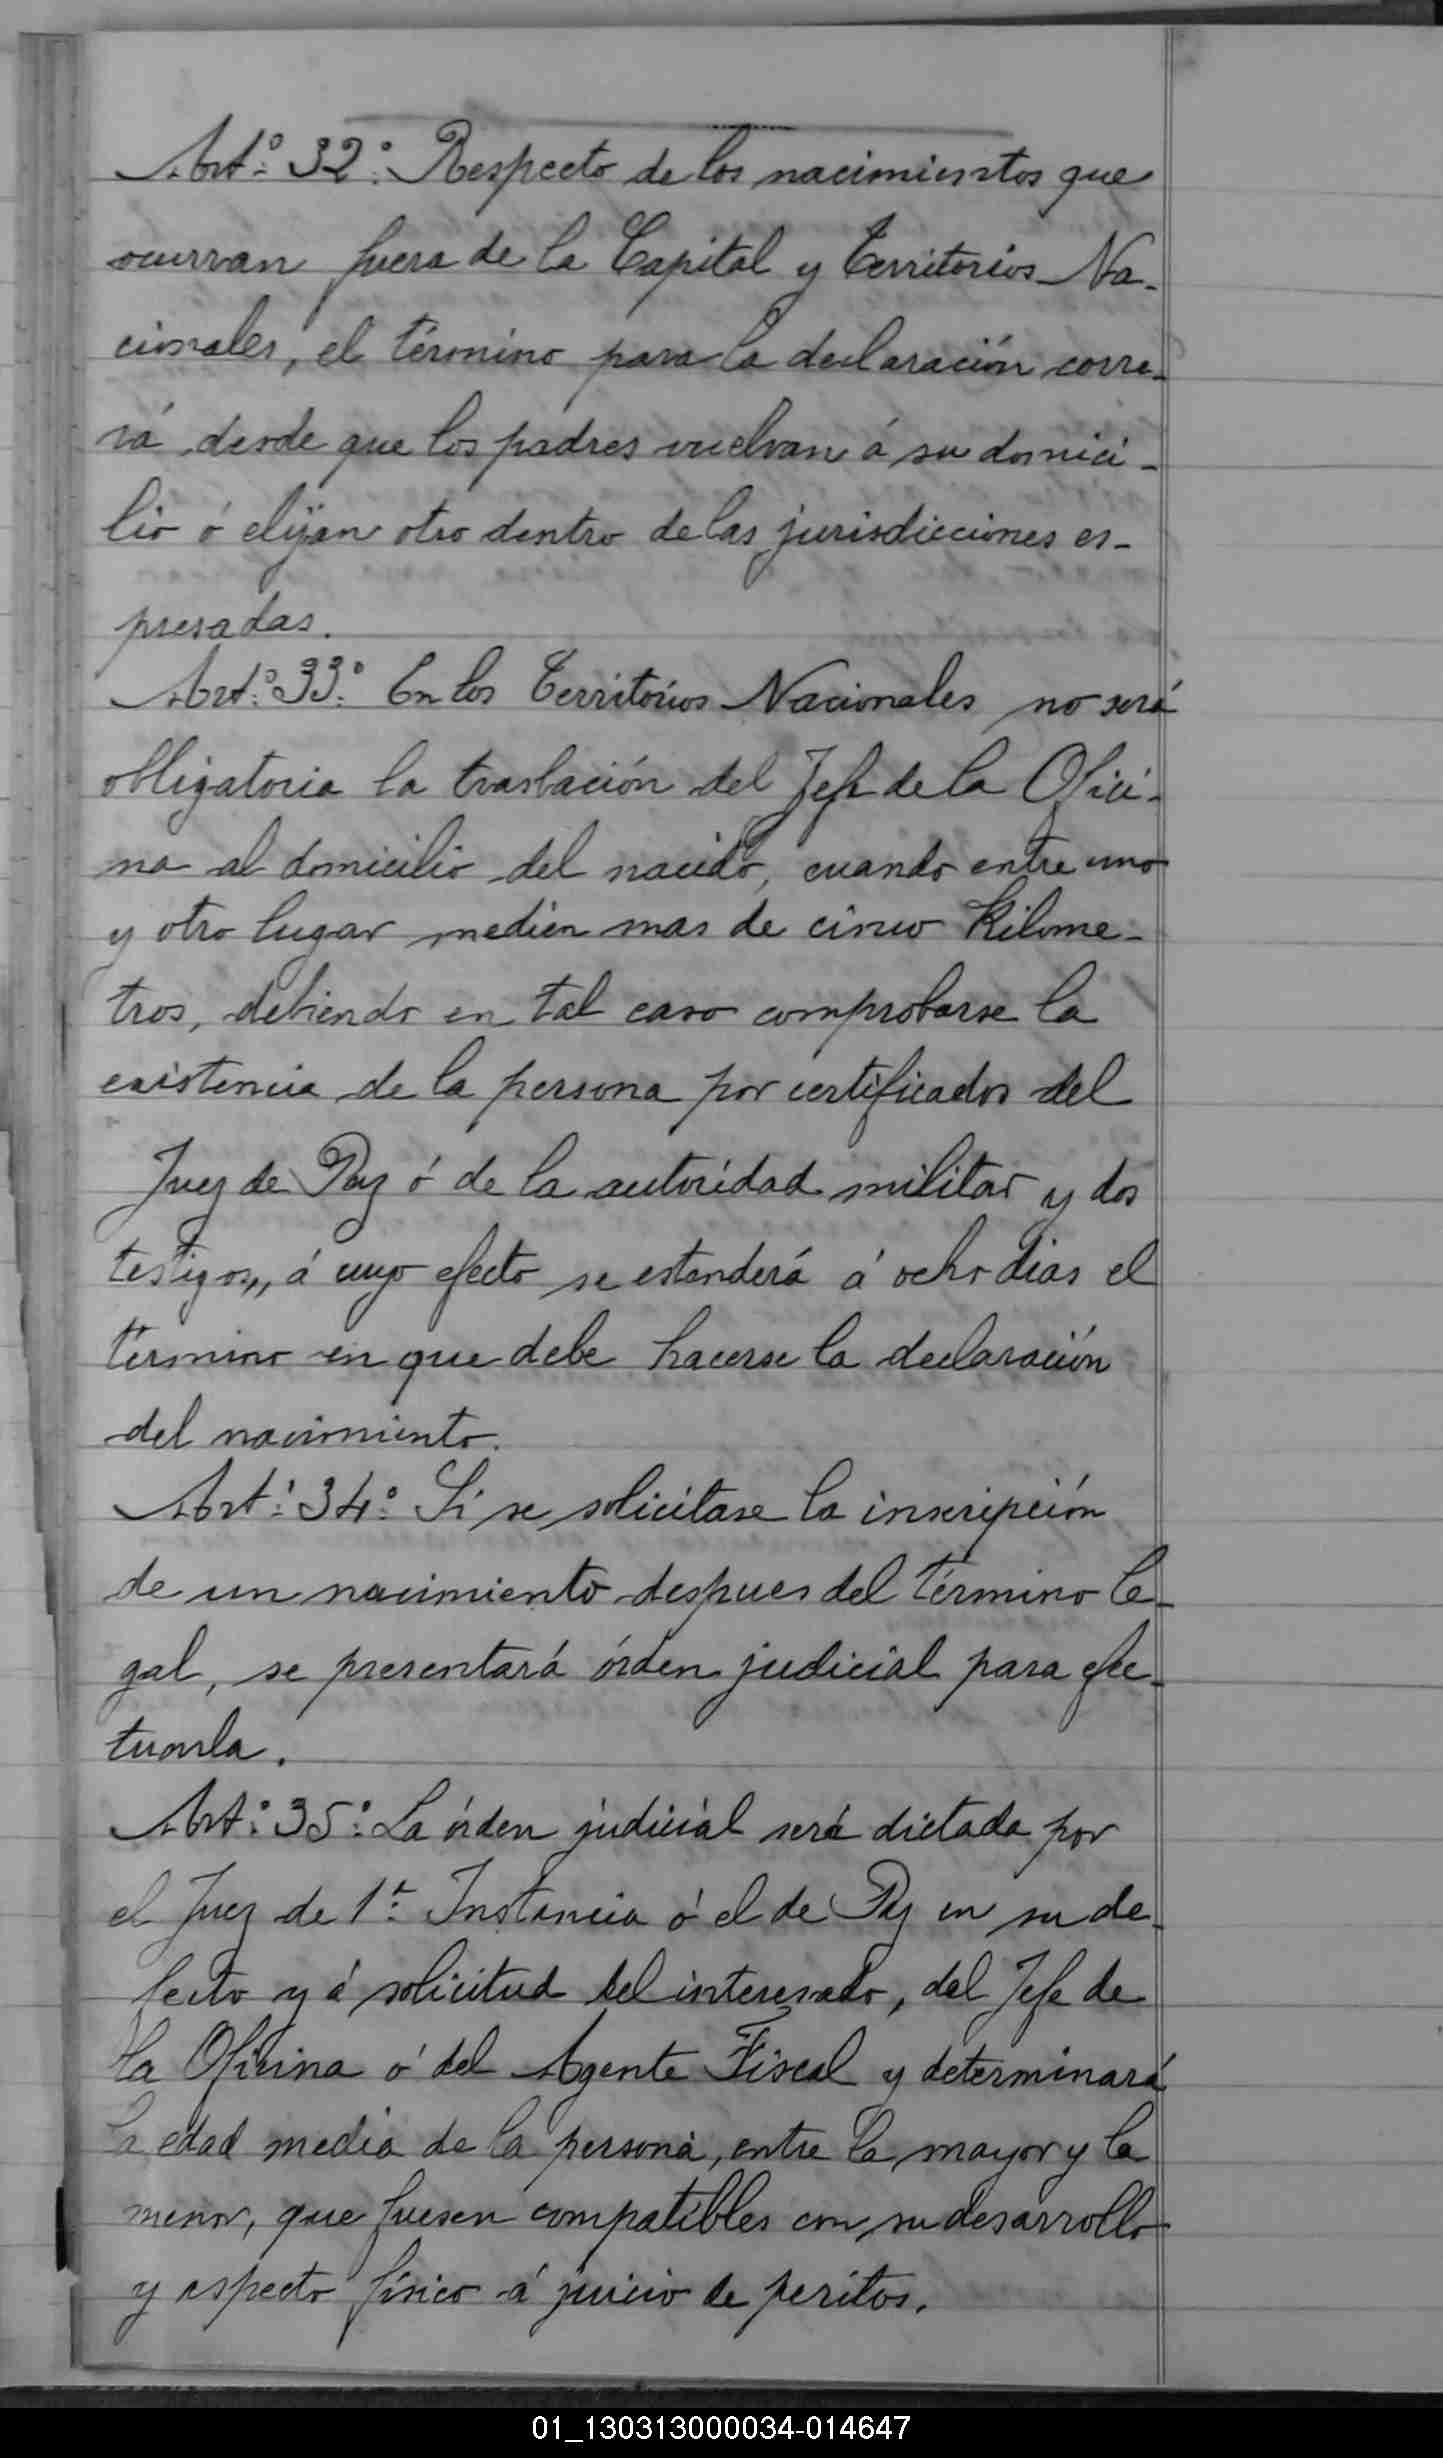 Artº 32º: Respecto de los nacimientos que
ocurran fuera de la Capital y Territorios Na-
cionales, el término para la declaración corre-
rá desde que los padres vuelvan á su domici-
lio ó elijan otro dentro de las jurisdicciones es-
presadas.
Artº 33º: En los Territorios Nacionales no será
obligatoria la traslación del Jefe de la Ofici-
na al domicilio del nacido, cuando entre uno
y otro lugar medien mas de cinco Kilome-
tros, debiendo en tal caso comprobarse la
existencia de la persona por certificados del
Juez de Paz ó de la autoridad militar y dos
testigos,, á cuyo efecto se estenderá á ocho dias el
término en que debe hacerse la declaración
del nacimiento.
Artº 34º: Si se solicitase la inscripción
de un nacimiento despues del término le-
gal, se presentará órden judicial para efec-
tuarla.
Artº 35º: La órden judicial será dictada por
el Juez de 1ª Instancia ó el de Paz en su de-
fecto y á solicitud del interesado, del Jefe de
la Oficina ó del Agente Fiscal y determinará
la edad media de la persona, entre la mayor y la
menor, que fuesen compatibles con su desarrollo
y aspecto físico á juicio de peritos.
01_130313000034-014647